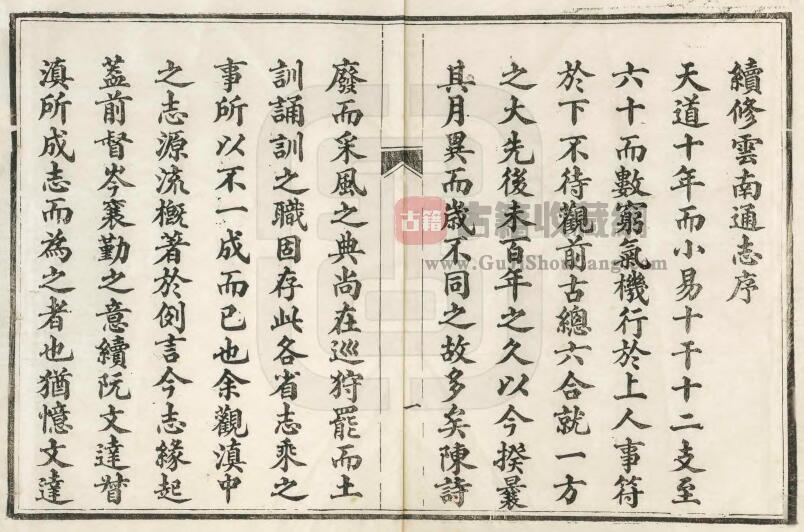 續修雲南通志序
天道十年而小易十干十二支至
六十而數窮氣機行於上人事符
於下不待觀前古總六合就一方
之大先後未百年之久以今揆曩
其月異而歳不同之故多矣陳詩
廢而采風之典尚在巡狩罷而土
訓誦訓之職固存此各省志乘之
事所以不一成而已也余觀滇中
之志源流槪著於例言今志緣起
葢前督岑襄勤之意續阮文達督
滇所成志而為之者也猶憶文達
一
古籍
古籍收藏網
www.GujiShouCang.com